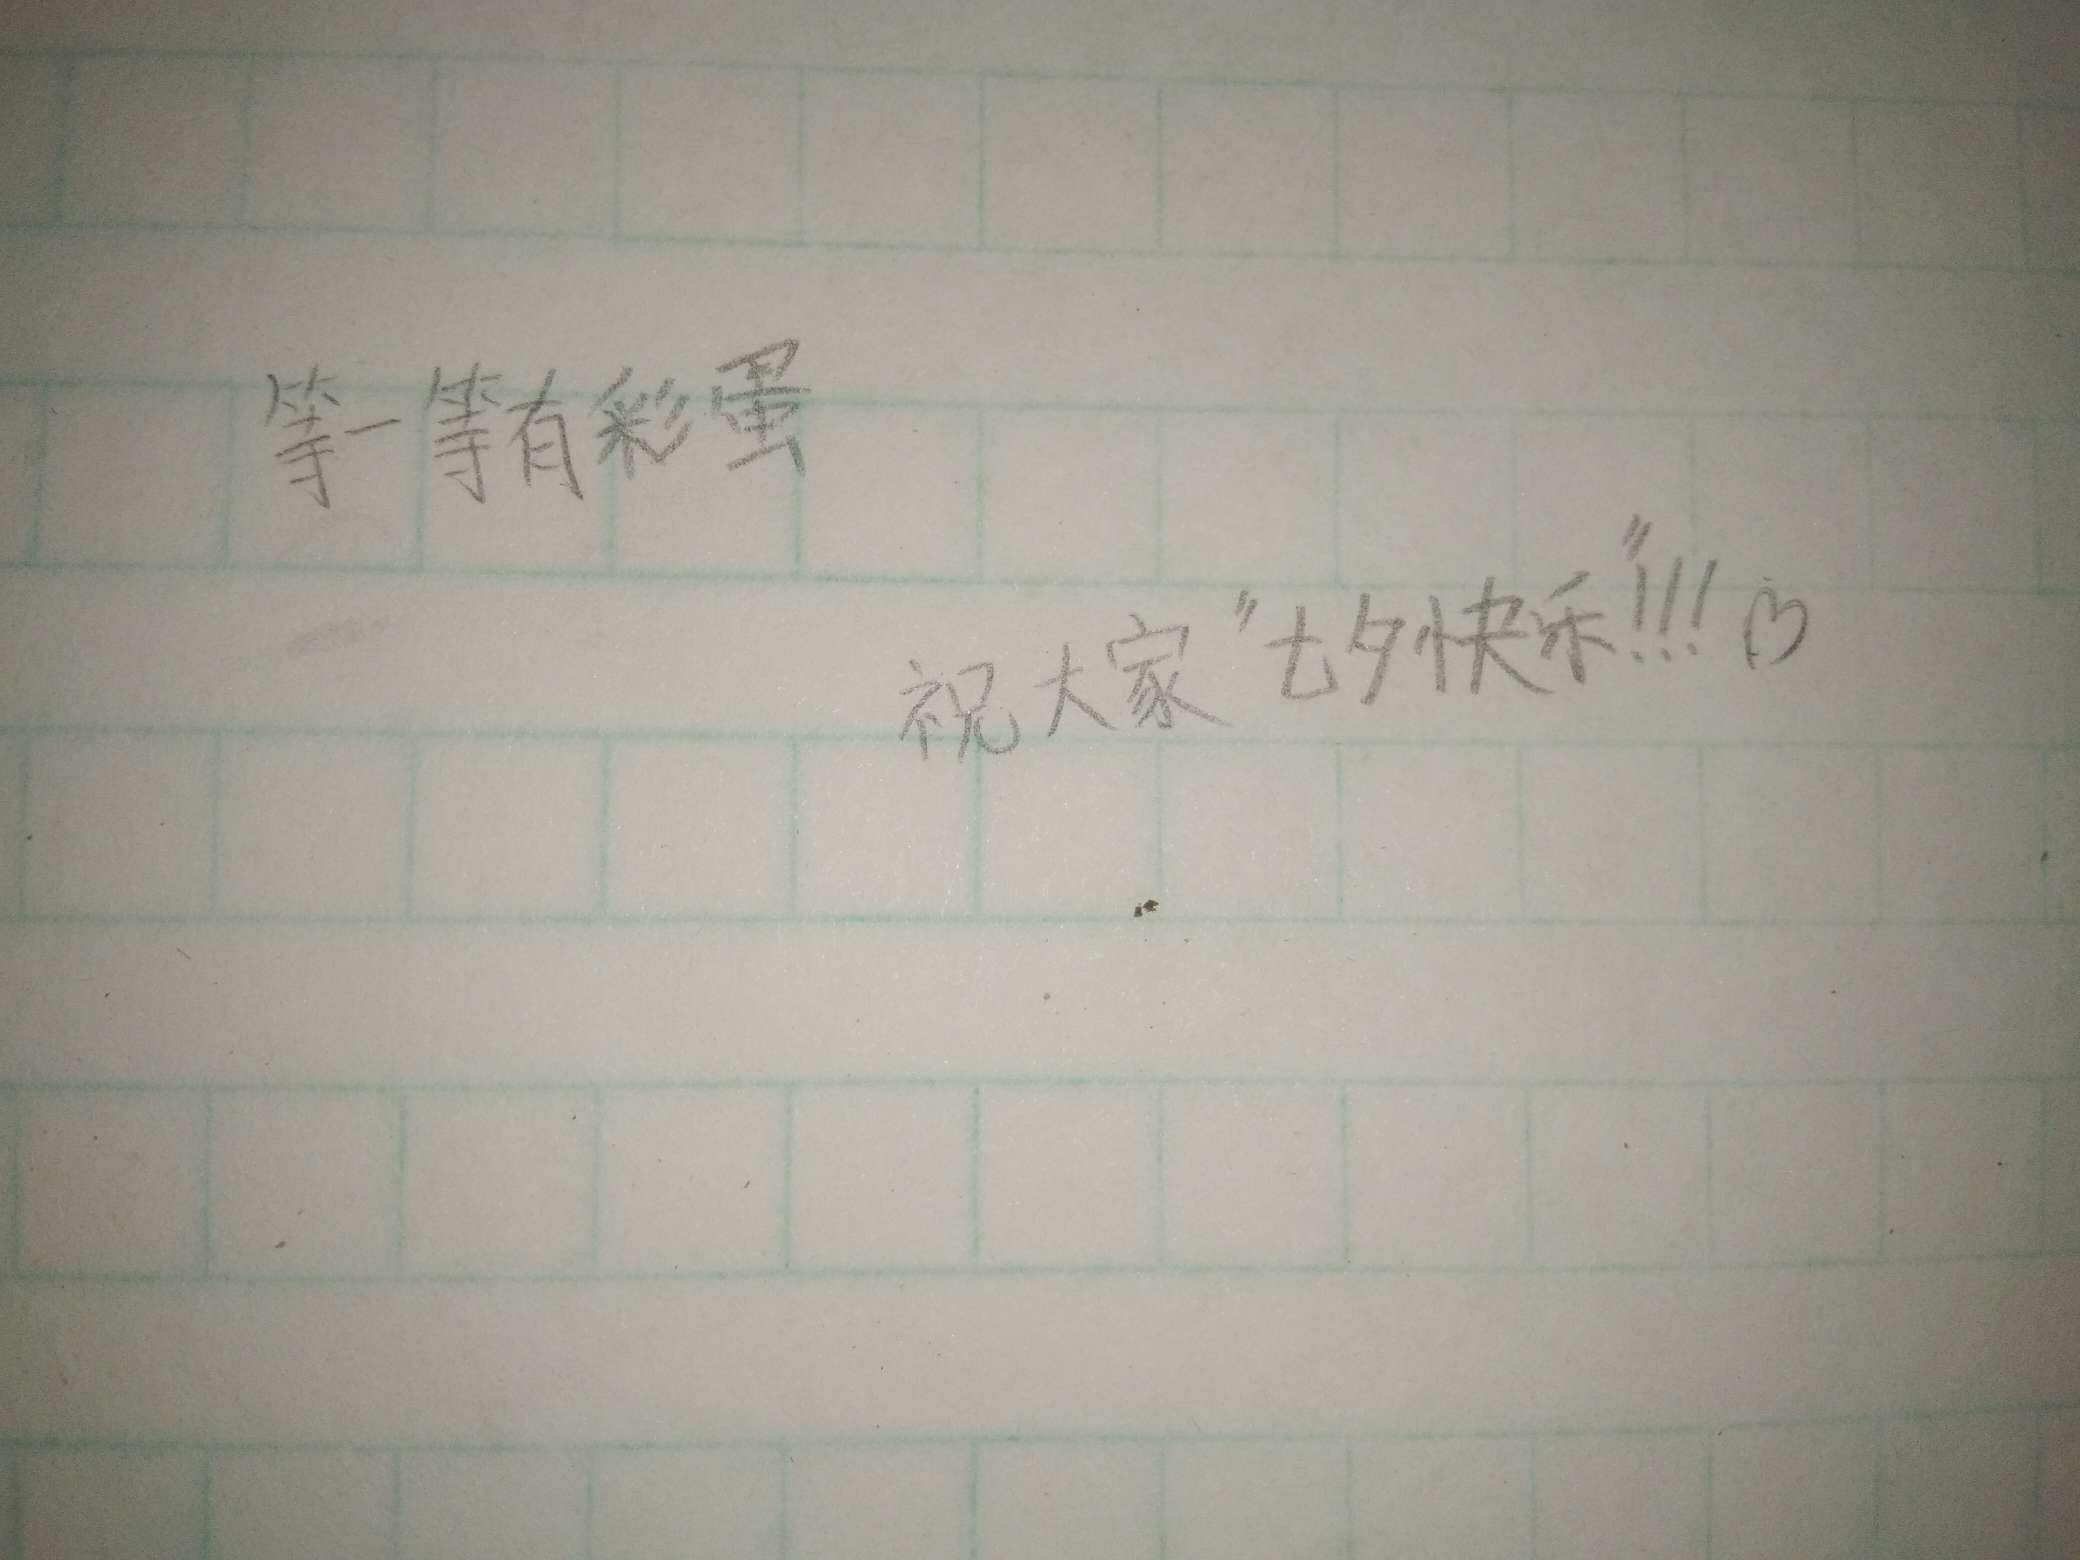 等一等有彩蛋
祝大家"七夕快乐"!!!♡